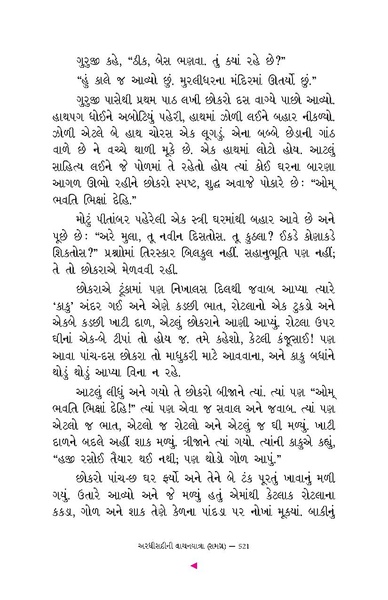 ગુરુજી કહે, “ઠીક, બેસ ભણવા. તું ક્યાં રહે છે?”
“હું કાલે જ આવ્યો છું. મુરલીધરના મંદિરમાં ઊતર્યો છું.”
ગુરુજી પાસેથી પ્રથમ પાઠ લખી છોકરો દસ વાગ્યે પાછો આવ્યો.
હાથપગ ધોઈને અબોટિયું પહેરી, હાથમાં ઝોળી લઈને બહાર નીકળ્યો.
ઝોળી એટલે બે હાથ ચોરસ એક લૂગડું. એના બબ્બે છેડાની ગાંઠ
વાળે છે ને વચ્ચે થાળી મૂકે છે. એક હાથમાં લોટો હોય. આટલું
સાહિત્ય લઈને જે પોળમાં તે રહેતો હોય ત્યાં કોઈ ઘરના બારણા
આગળ ઊભો રહીને છોકરો સ્પષ્ટ, શુદ્ધ અવાજે પોકારે છે : “ઓમ્
ભવતિ ભિક્ષાં દેહિ.”
મોટું પીતાંબર પહેરેલી એક સ્ત્રી ઘરમાંથી બહાર આવે છે અને
પૂછે છે : “અરે મુલા, તૂ નવીન દિસતોસ. તૂ કુઠલા? ઈકડે કોણાકડે
શિકતોસ?” પ્રશ્નોમાં તિરસ્કાર બિલકુલ નહીં. સહાનુભૂતિ પણ નહીં;
તે તો છોકરાએ મેળવવી રહી.
છોકરાએ ટૂંકામાં પણ નિખાલસ દિલથી જવાબ આપ્યા ત્યારે
‘કાકુ’ અંદર ગઈ અને એણે કડછી ભાત, રોટલાનો એક ટુકડો અને
એકબે કડછી ખાટી દાળ, એટલું છોકરાને આણી આપ્યું. રોટલા ઉપર
ઘીનાં એક-બે ટીપાં તો હોય જ. તમે કહેશો, કેટલી કંજૂસાઈ! પણ
આવા પાંચ-દસ છોકરા તો માધુકરી માટે આવવાના, અને કાકુ બધાંને
થોડું થોડું આપ્યા વિના ન રહે.
આટલું લીધું અને ગયો તે છોકરો બીજાને ત્યાં. ત્યાં પણ “ઓમ્
ભવતિ ભિક્ષાં દેહિ!” ત્યાં પણ એવા જ સવાલ અને જવાબ. ત્યાં પણ
એટલો જ ભાત, એટલો જ રોટલો અને એટલું જ ઘી મળ્યું. ખાટી
દાળને બદલે અહીં શાક મળ્યું. ત્રીજાને ત્યાં ગયો. ત્યાંની કાકુએ કહ્યું,
“હજી રસોઈ તૈયાર થઈ નથી; પણ થોડો ગોળ આપું.”
છોકરો પાંચ-છ ઘર ફર્યો અને તેને બે ટંક પૂરતું ખાવાનું મળી
ગયું. ઉતારે આવ્યો અને જે મળ્યું હતું એમાંથી કેટલાક રોટલાના
કકડા, ગોળ અને શાક તેણે કેળના પાંદડા પર નોખાં મૂક્યાં. બાકીનું
અરધી સદીની વાચનયાત્રા (સમગ્ર) — 521